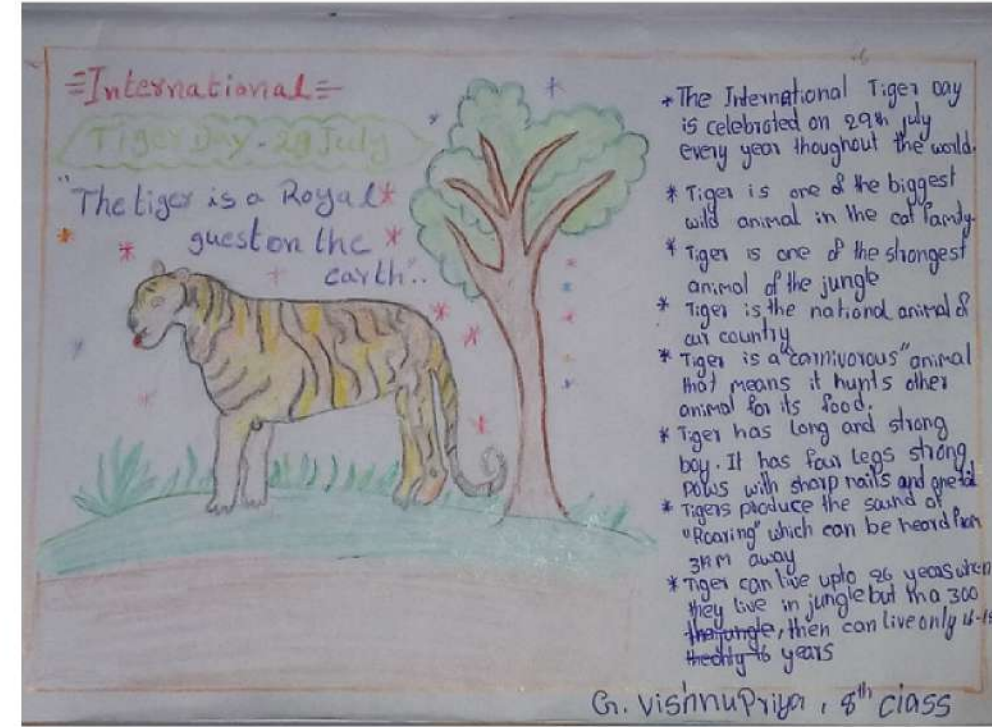 =International=
Tiger Day - 29 July
"The tiger is a Royal
guest on the
earth"..
* The International Tiger Day
is celebrated on 29th july
every year thoughout the world.
* Tiger is one of the biggest
wild animal in the cat family
* Tiger is one of the strongest
animal of the jungle
* Tiger is the national animal of
our country
* Tiger is a "carnivorous" animal
that means it hunts other
animal for its food.
* Tiger has long and strong
boy. It has four legs strong
paws with sharp nails and one tail
* Tigers produce the sound of
"Roaring" which can be heard from
3KM away
* Tiger can live upto 26 years when
they live in jungle but in a zoo
the jungle, then can live only 16-
the only 16 years
G. VishnuPriya, 8th class